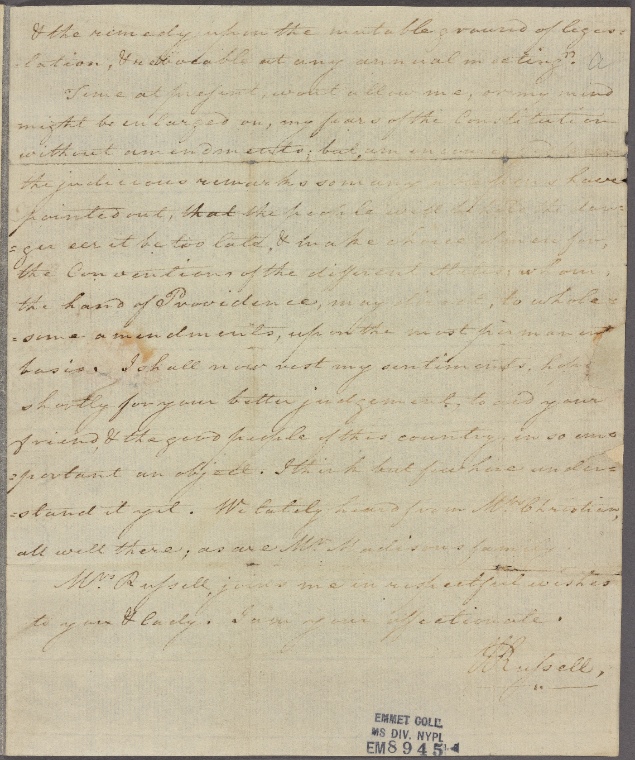 & the remedy upon the mutable ground of legis=
lation, & revocable at any annual meeting.
Time at present, wont allow me, or my mind
might be enlarged on, my fears of the Constitution
without amendments; but, am
the judicious remarks so many have
pointed out, that the people will be
=ger eer it be too late, & make choice of men for,
the Conventions of the different States; whom,
the hand of Providence, may direct, to whole=
=some amendments, upon the most permanent
basis. I shall now rest my sentiments, hope
shortly for your better judgement, to aid your
friend, & the good people of this country, in so im=
=portant an object. I think but few here under=
=stand it yet. We lately heard from Mrs. Christian,
all well there, as are Mr. Madisons family
Mrs. Russell, joins me in respectful wishes
to you & Lady. I am your affectionate.
Russell,
EMMET COLL.
MS DIV. NYPL
EM8945